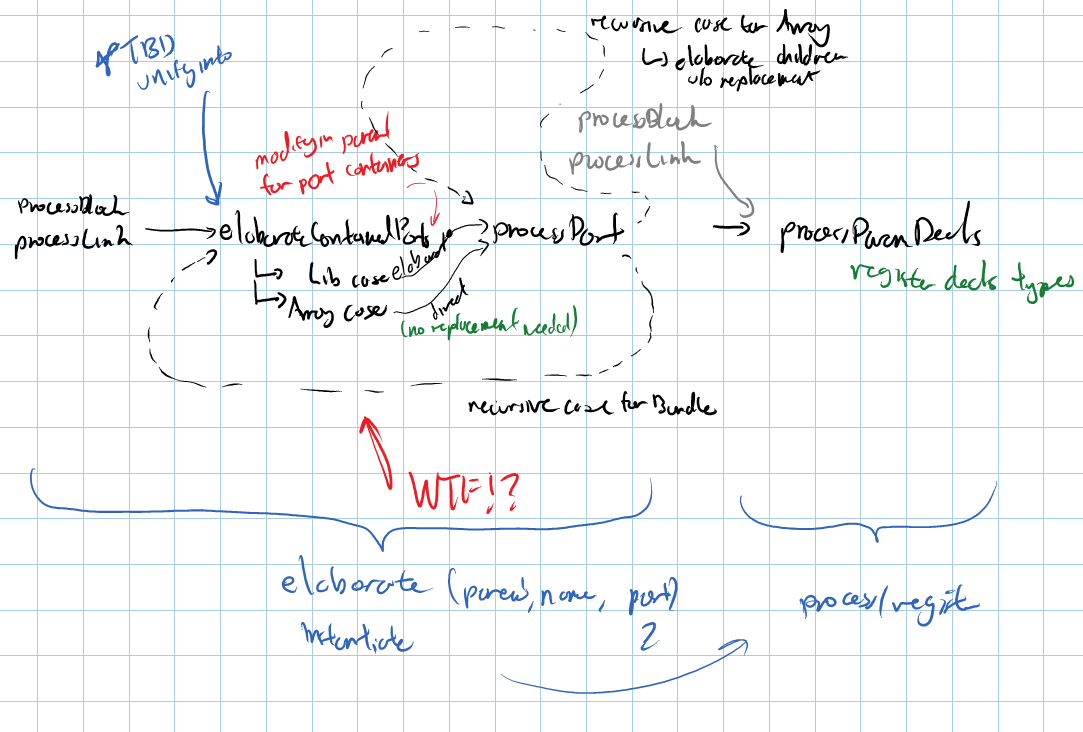 recursive case for Array
↳ elaborate children
w/o replacement
TBD
unify into
processBlock
processLink
modify in parent
for port containers
processBlock
processLink
elaborateContainedPorts
processPort
processParamDecls
Lib case
elaborate
register decls types
Array case
direct
(no replacement needed)
recursive case for Bundle
WTF!?
elaborate (parent, name, port)
process/regist
instantiate